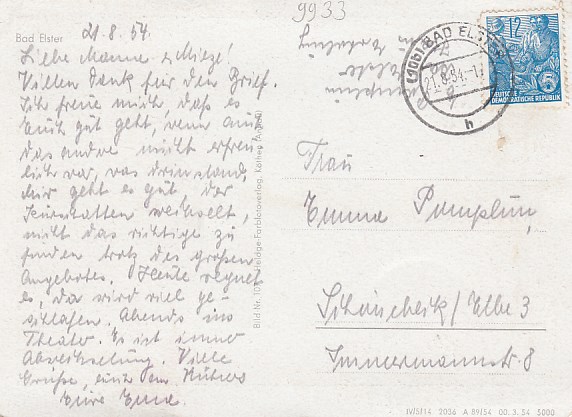 9933
21.8.54.
Bad Elster
Liebe Manne u. Mieze!
Vielen Dank für den Brief.
Ich freue mich, daß es
Euch gut geht, wenn auch
das andre nicht erfreu
lich war, was drinstand,
Mir geht es gut. Der
wechselt,
nicht das richtige zu
finden trotz des großen
Angebotes. Heute regnet
es, da wird viel ge-
schlafen. Abends ins
Theater. Es ist immer
Abwechselung. Viele
Grüße,
Eure Erna.
Bild Nr.
(10b) BAD ELSTER
21.8.54.-17
h
12
5
DEUTSCHE
DEMOKRATISCHE REPUBLIK
Frau
Emma Pumplün,
Schönebeck/Elbe 3
Immermannstr. 8
IV/5/14 2036 A 89/54 00. 3. 54 5000